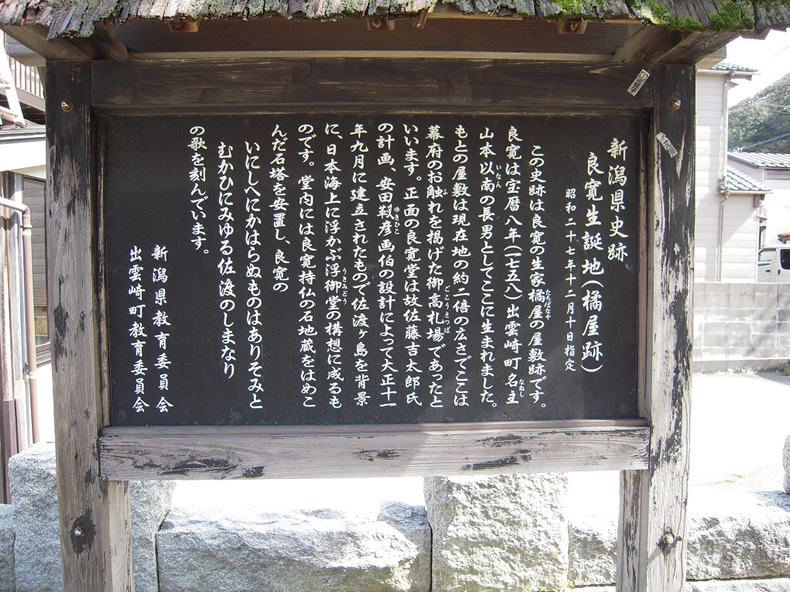 新潟県史跡
良寛生誕地(橘屋跡)
昭和二十七年十二月十日指定
この史跡は良寛の生家橘屋の屋敷跡です。
良寛は宝暦八年(一七五八)出雲崎町名主
山本以南の長男としてここに生まれました。
もとの屋敷は現在地の約二倍の広さでここは
幕府のお触れを掲げた御高札場であったと
いいます。正面の良寛堂は故佐藤吉太郎氏
の計画、安田靫彦画伯の設計によって大正十一
年九月に建立されたもので佐渡ヶ島を背景
に、日本海上に浮かぶ浮御堂の構想に成るも
のです。堂内には良寛持仏の石地蔵をはめこ
んだ石塔を安置し、良寛の
いにしへにかはらぬものはありそみと
むかひにみゆる佐渡のしまなり
の歌を刻んでいます。
新潟県教育委員会
出雲崎町教育委員会